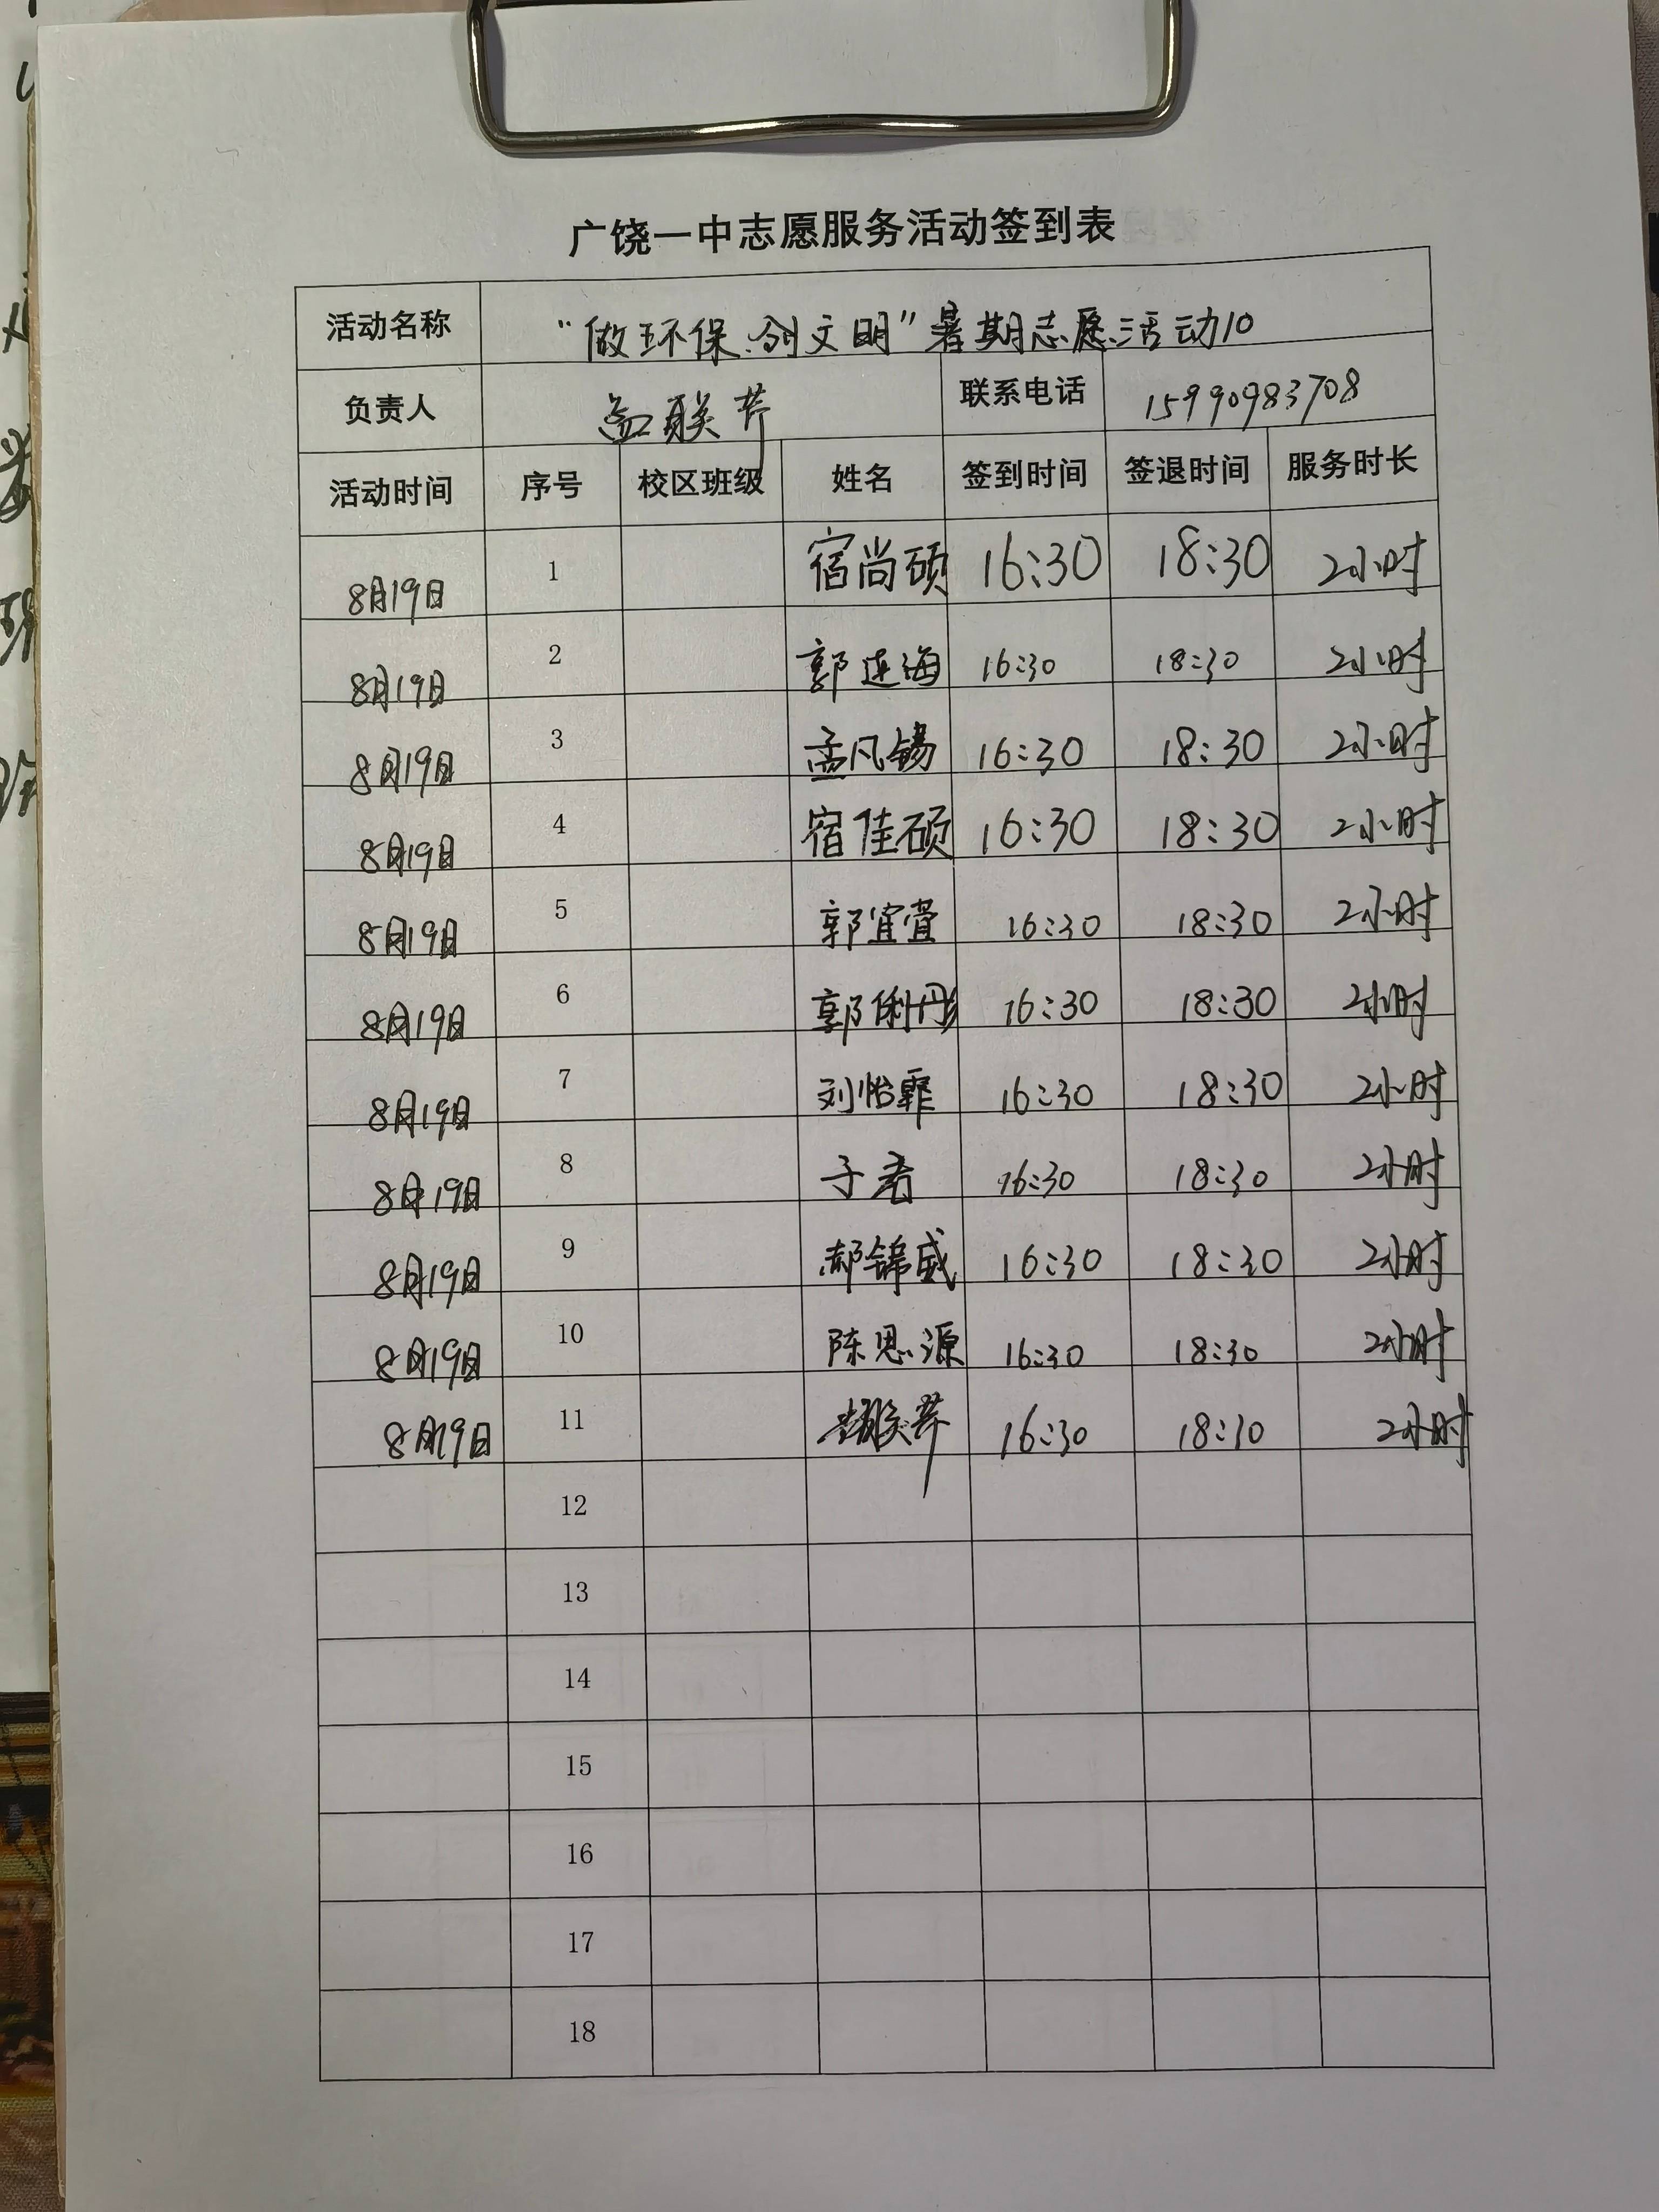 广饶一中志愿服务活动签到表
活动名称 “做环保、创文明”暑期志愿活动10
负责人 孟联芹 联系电话 15990983708
活动时间 序号 校区班级 姓名 签到时间 签退时间 服务时长
8月19日 1 宿尚硕 16:30 18:30 2小时
8月19日 2 郭连海 16:30 18:30 2小时
8月19日 3 孟凡锡 16:30 18:30 2小时
8月19日 4 宿佳硕 16:30 18:30 2小时
8月19日 5 郭宜萱 16:30 18:30 2小时
8月19日 6 郭俐彤 16:30 18:30 2小时
8月19日 7 刘怡霏 16:30 18:30 2小时
8月19日 8 16:30 18:30 2小时
8月19日 9 郝锦威 16:30 18:30 2小时
8月19日 10 陈思源 16:30 18:30 2小时
8月19日 11 孟联芹 16:30 18:30 2小时
12
13
14
15
16
17
18